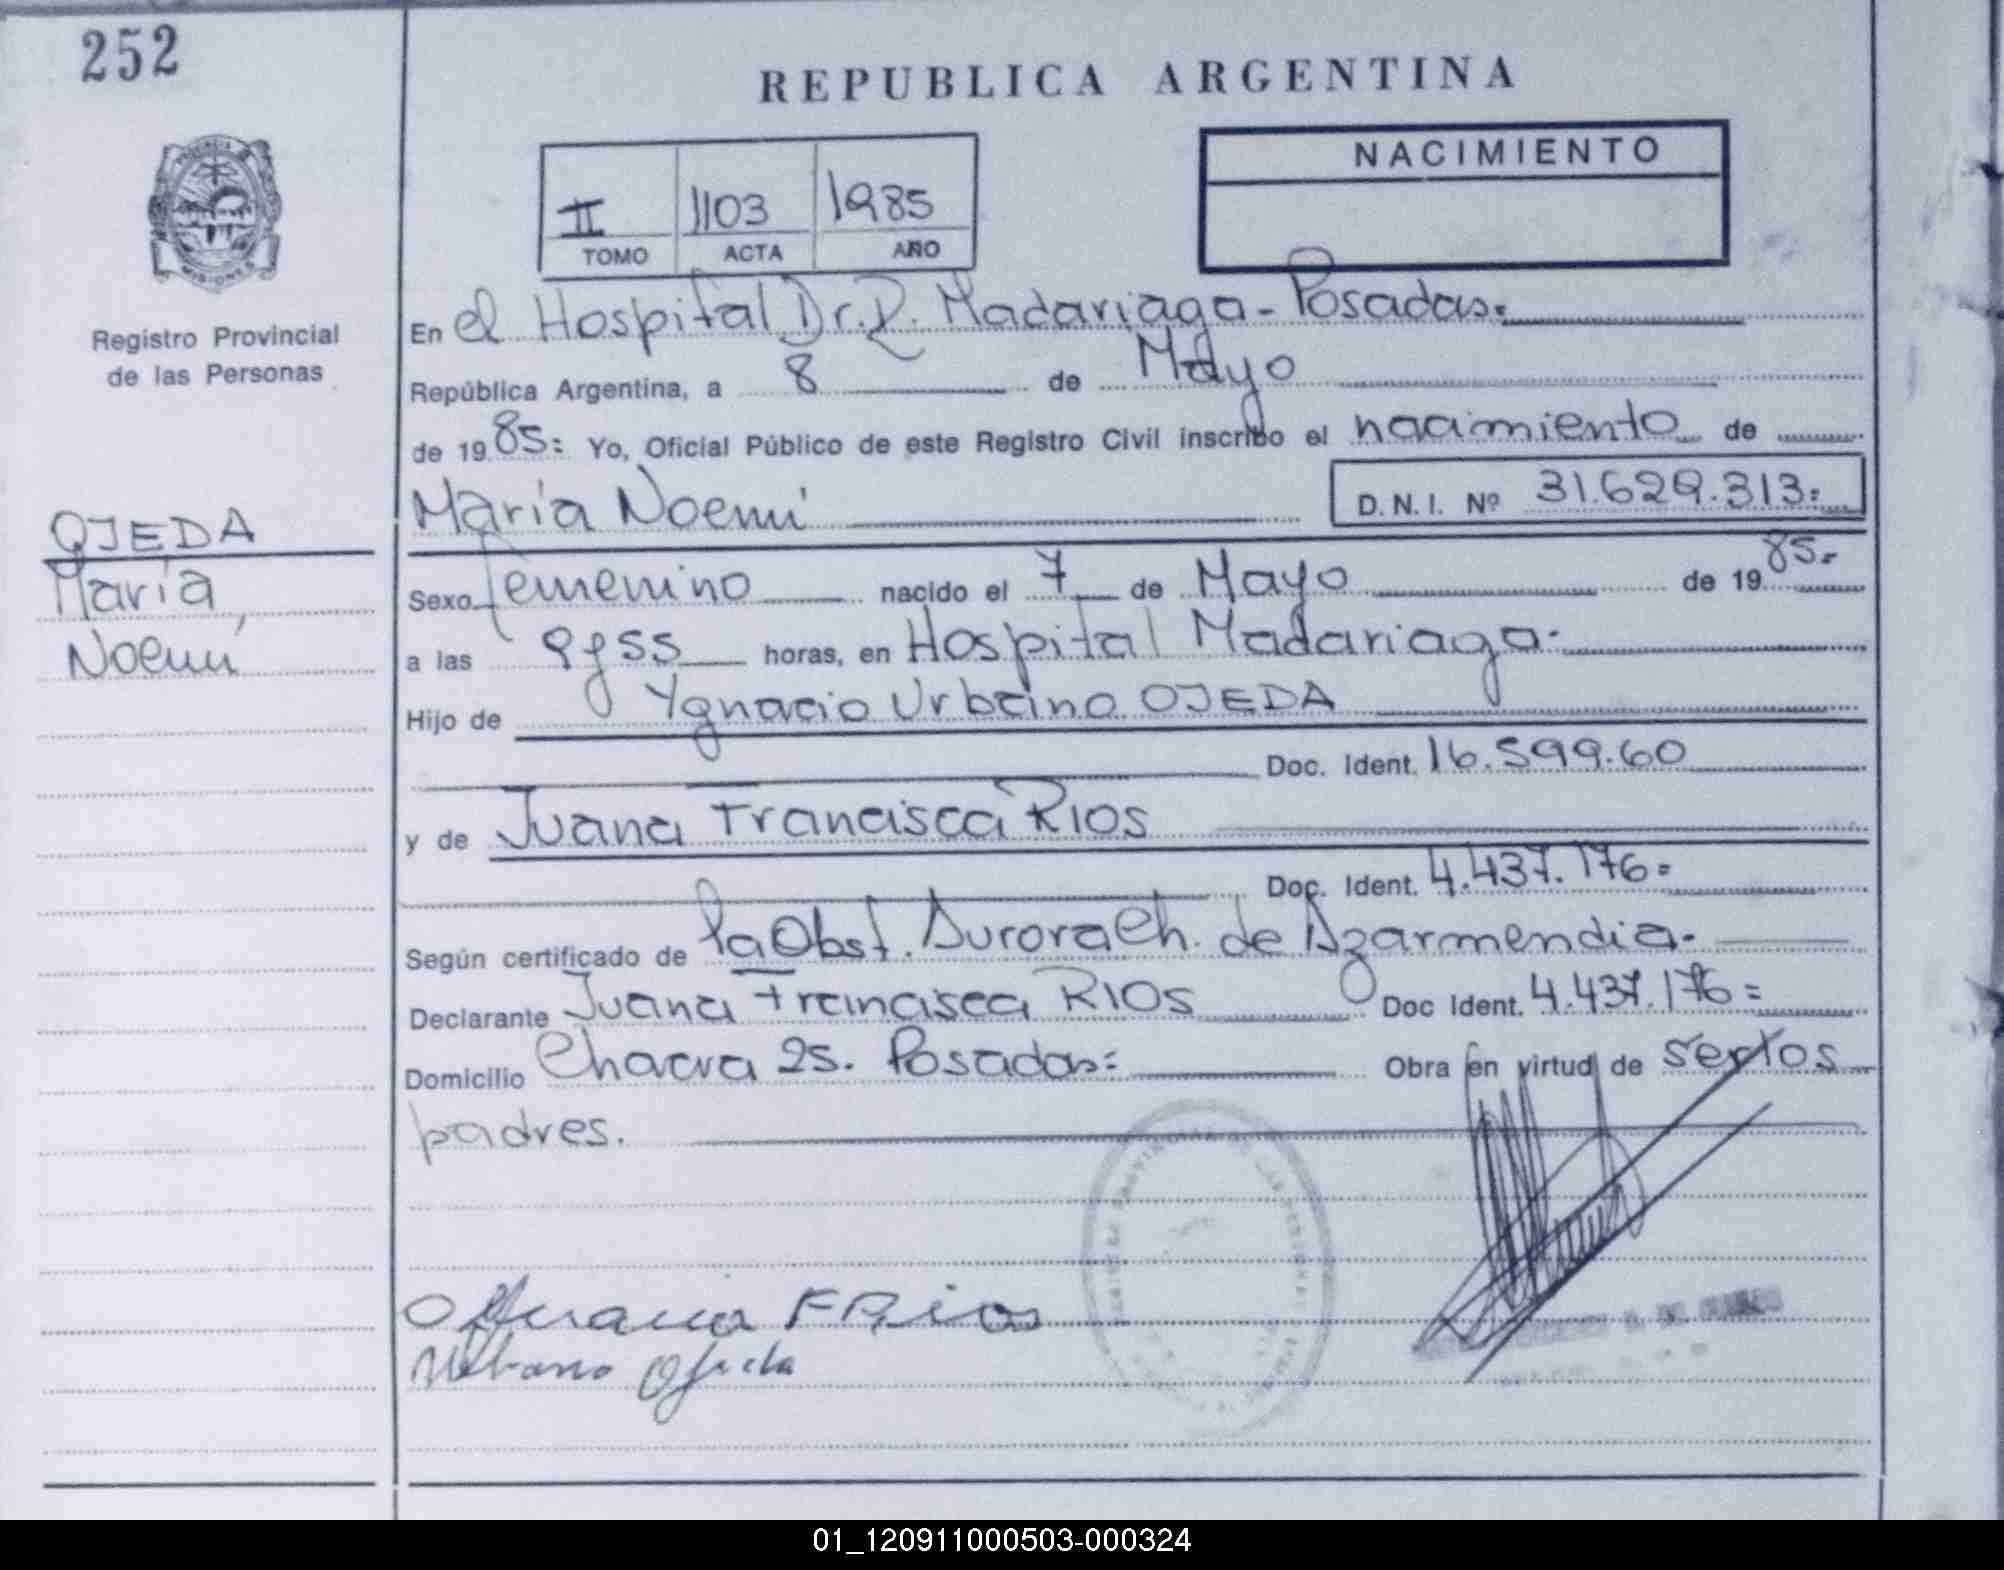 252
REPUBLICA ARGENTINA
NACIMIENTO
II 1103 1985
TOMO ACTA AÑO
PROVINCIA DE
MISIONES
Registro Provincial
de las Personas
En el Hospital Dr. R. Madariaga - Posadas.
República Argentina, a 8 de Mayo
de 1985= Yo, Oficial Público de este Registro Civil inscribo el nacimiento de
María Noemí D.N.I. Nº 31.629.313=
OJEDA
María
Noemí
Sexo femenino nacido el 7 de Mayo de 1985.
a las 9y55 horas, en Hospital Madariaga.
Hijo de Ygnacio Urbano OJEDA
Doc. Ident. 16.599.60
y de Juana Francisca RIOS
Doc. Ident. 4.437.176=
Según certificado de la Obst. Aurora Ch. de Azarmendia.
Declarante Juana Francisca RIOS Doc Ident. 4.437.176=
Domicilio Chacra 25. Posadas= Obra en virtud de serlos
padres.
Juana F Rios
Urbano Ojeda
01_120911000503-000324